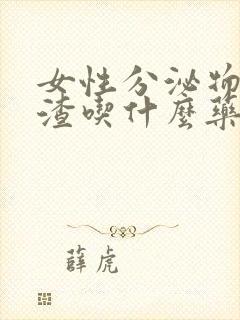 女性分泌物
渣喫什麼藥
薛虎